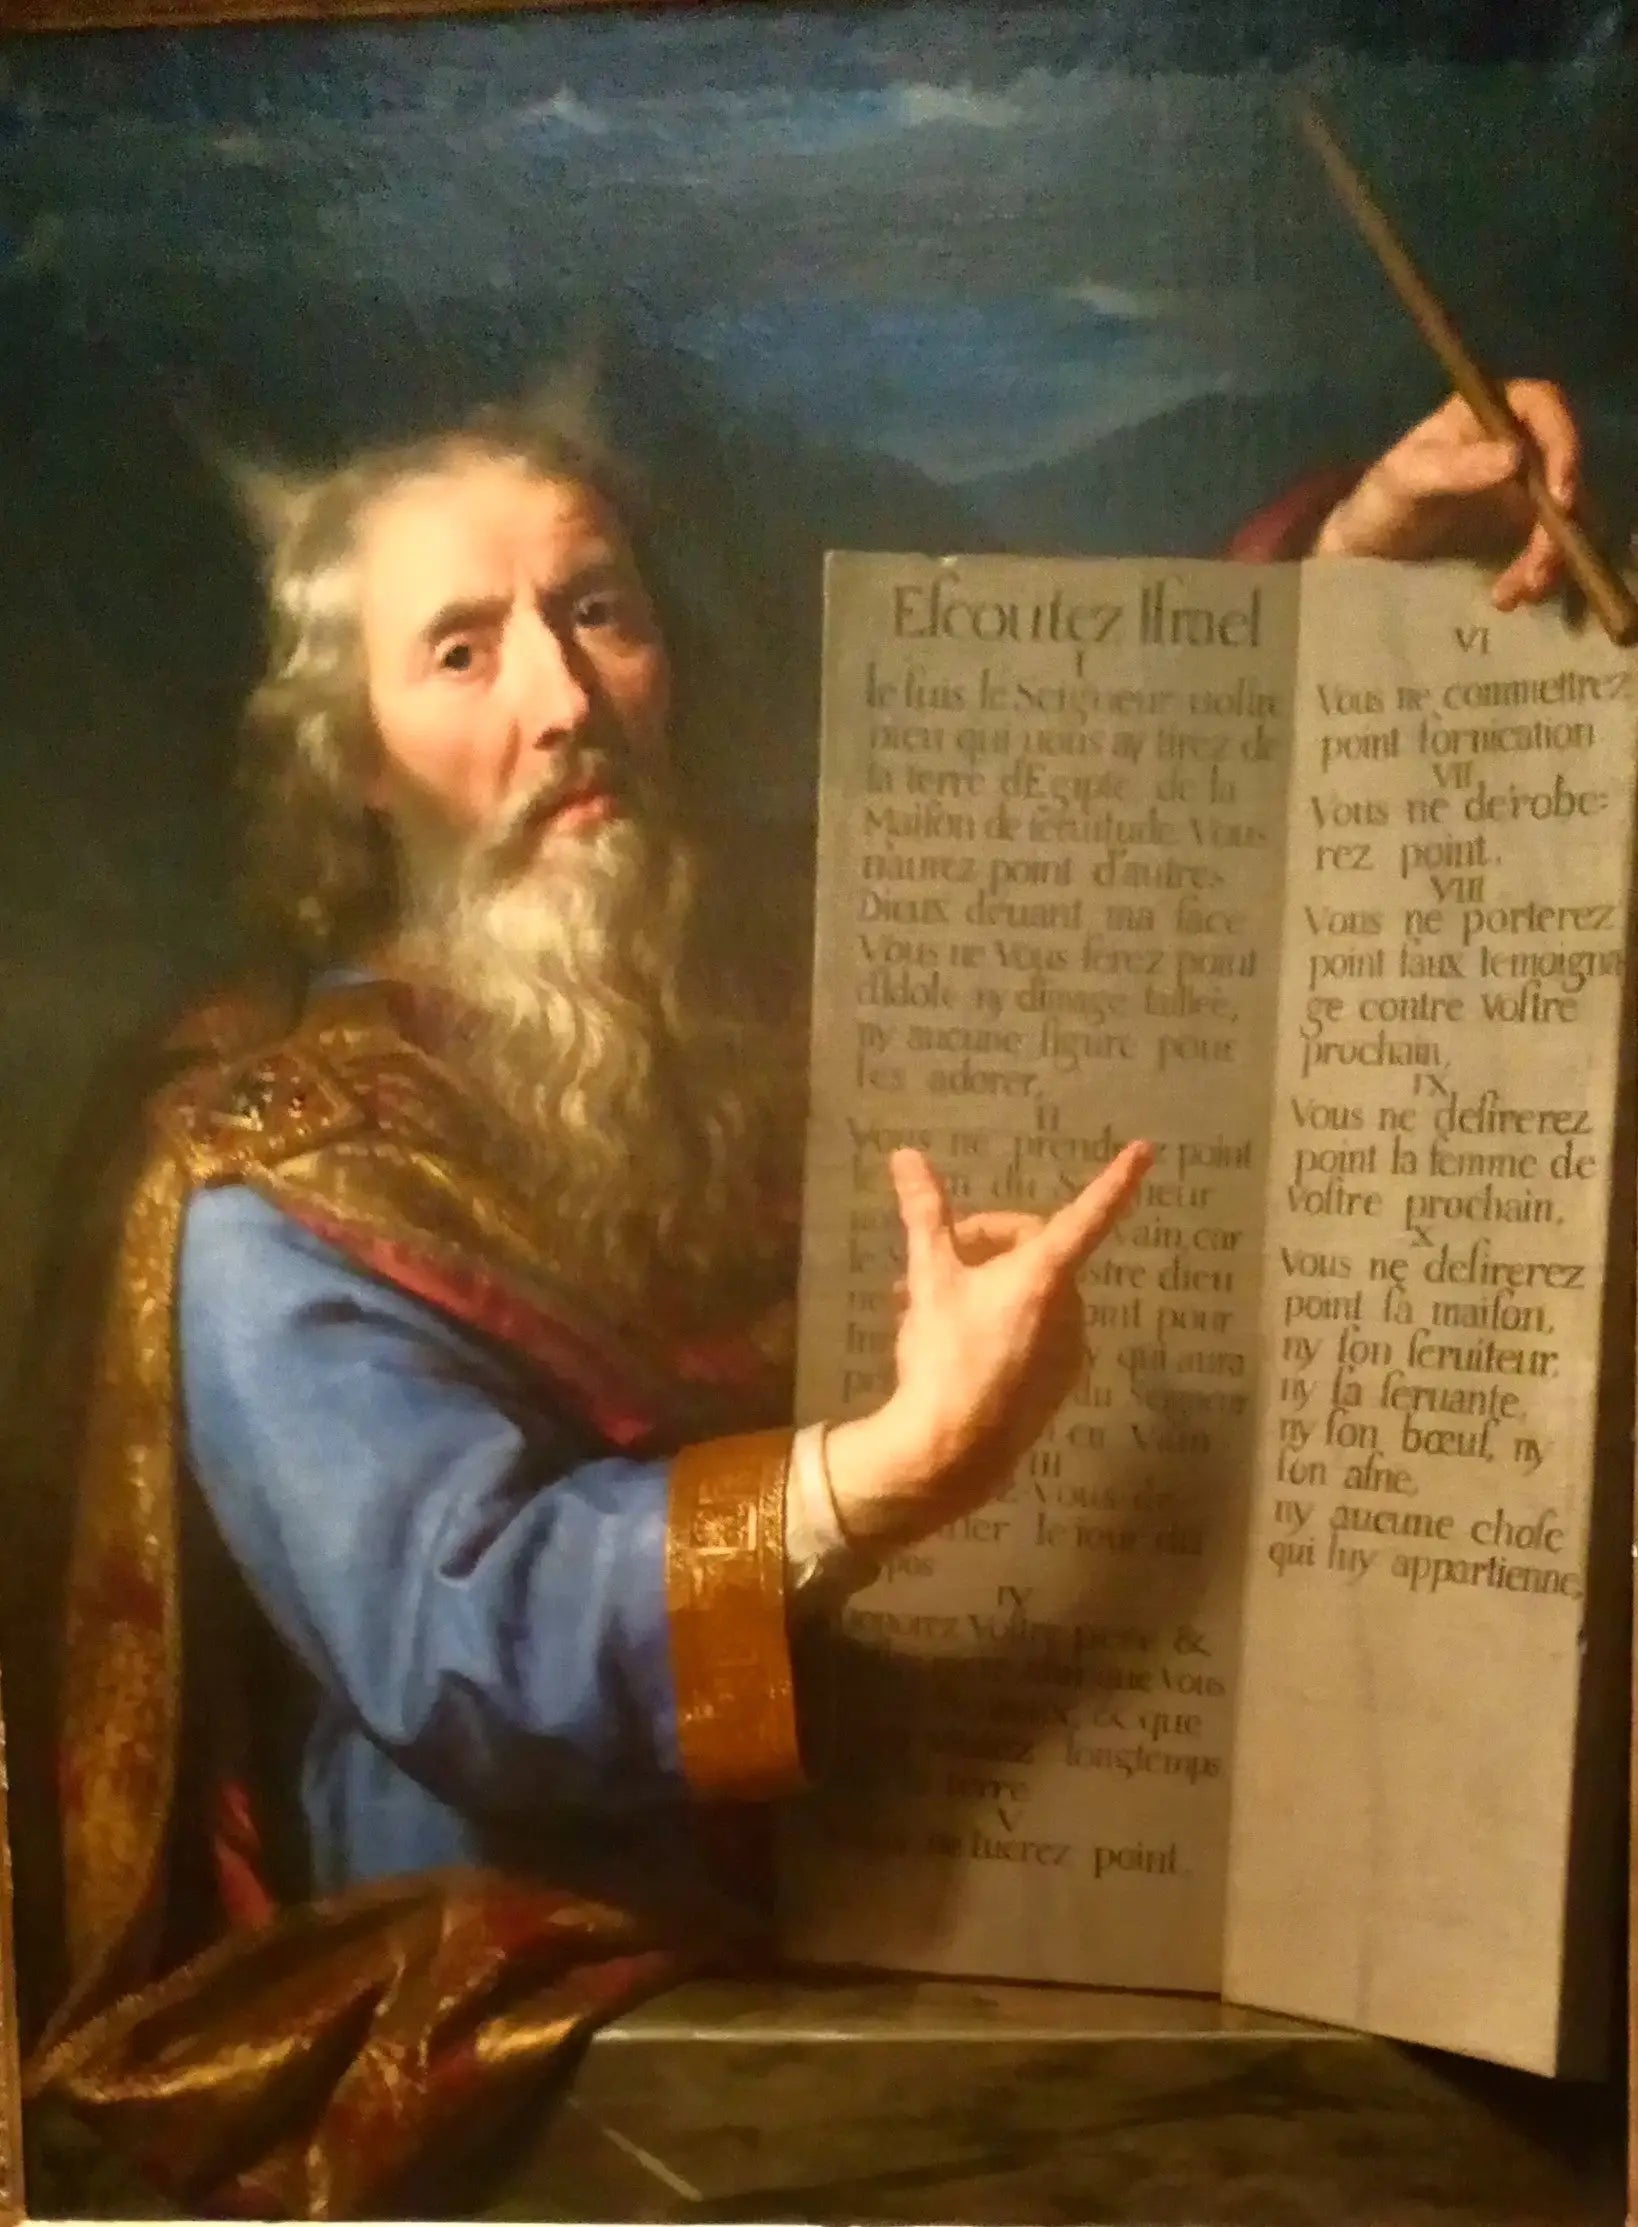 Eſcoutez Iſrael
I
Ie ſuis le Seigneur voſtre
Dieu qui vous ay tirez de
la terre d'Egipte de la
Maiſon de ſeruitude Vous
n'aurez point d'autres
Dieux deuant ma face
Vous ne Vous ferez point
d'Idole ny d'image taillée,
ny aucune figure pour
les adorer,
II
Vous ne prendrez point
le du
vain, car
dieu
pour
qui aura
du Seigneur
en Vain
III
Vous de
le iour du
IV
Voſtre pere &
que Vous
& que
longtemps
terre
V
tuerez point.
VI
Vous ne commettrez
point fornication
VII
Vous ne dérobe=
rez point.
VIII
Vous ne porterez
point faux temoigna
ge contre Voſtre
prochain,
IX
Vous ne deſirerez
point la femme de
Voſtre prochain,
X
Vous ne deſirerez
point ſa maiſon,
ny ſon ſeruiteur,
ny ſa ſeruante,
ny ſon bœuf, ny
ſon aſne,
ny aucune choſe
qui luy appartienne,